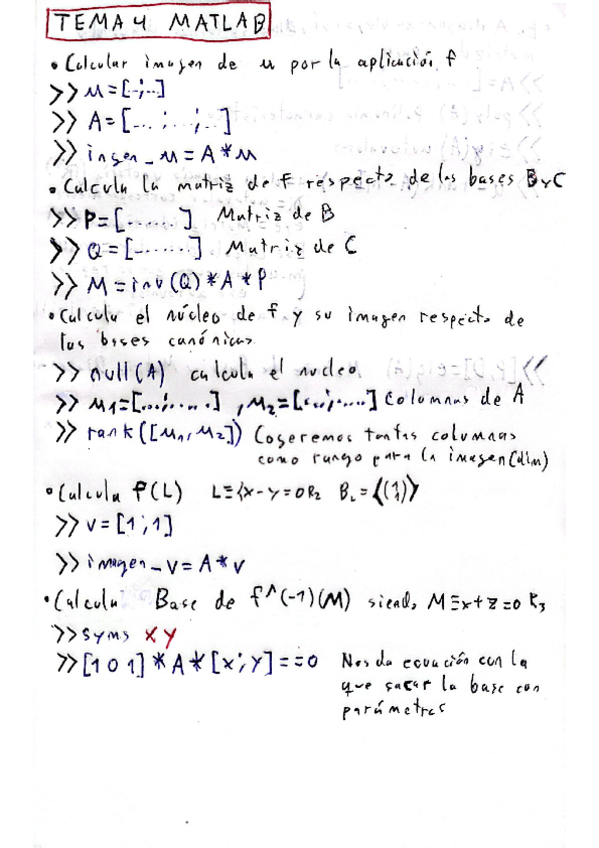 TEMA 4 MATLAB
• Calcular imagen de u por la aplicación f
>> u=[-;..]
>> A=[... ...;...]
>> imgen_u=A*u
• Calcula la matriz de f respecto de las bases B y C
>> P=[......] Matriz de B
>> Q=[......] Matriz de C
>> M=inv(Q)*A*P
• Calcula el núcleo de f y su imagen respecto de
las bases canónicas
>> null(A) calcula el nucleo
>> u1=[...;....], u2=[...;....] Columnas de A
>> rank([u1, u2]) Cogeremos tantas columnas
como rango para la imagen (dim)
• Calcula f(L) L≡{x-y=0 R2 BL=<(1 1)>
>> v=[1;1]
>> imagen_v=A*v
• Calcula Base de f^(-1)(M) siendo M≡x+z=0 R3
>> syms x y
>> [1 0 1]*A*[x;y]==0 Nos da ecuación con la
que sacar la base con
parámetros